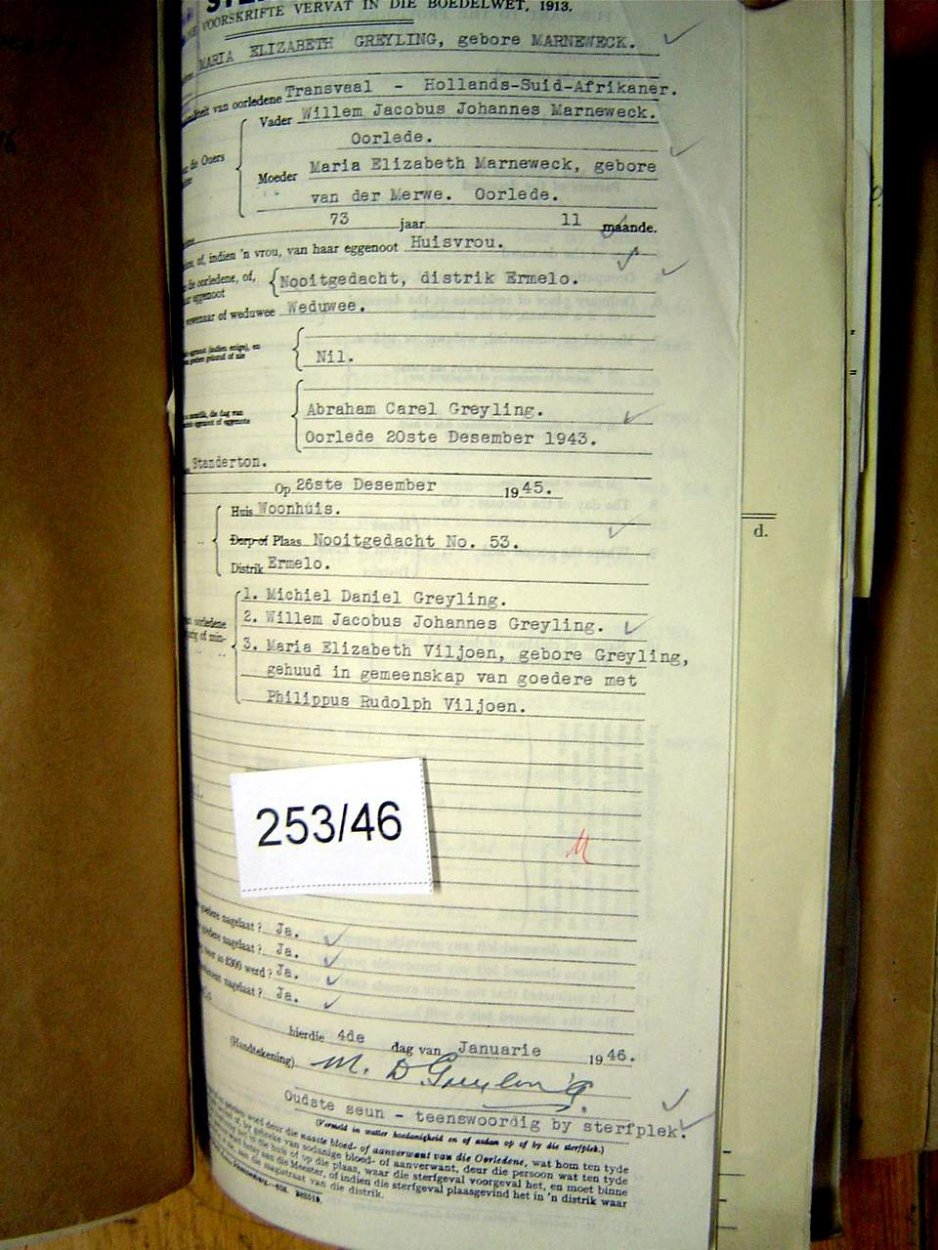 VOORSKRIFTE VERVAT IN DIE BOEDELWET, 1913.
MARIA ELIZABETH GREYLING, gebore MARNEWECK.
van oorledene Transvaal - Hollands-Suid-Afrikaner.
Vader Willem Jacobus Johannes Marneweck.
Oorlede.
die Ouers
Moeder Maria Elizabeth Marneweck, gebore
van der Merwe. Oorlede.
73 jaar 11 maande.
of, indien 'n vrou, van haar eggenoot Huisvrou.
die oorledene, of,
eggenoot Nooitgedacht, distrik Ermelo.
wewenaar of weduwee Weduwee.
Nil.
Abraham Carel Greyling.
Oorlede 20ste Desember 1943.
Standerton.
Op 26ste Desember 1945.
Huis Woonhuis.
Dorp of Plaas Nooitgedacht No. 53.
Distrik Ermelo.
1. Michiel Daniel Greyling.
oorledene 2. Willem Jacobus Johannes Greyling.
3. Maria Elizabeth Viljoen, gebore Greyling,
gehuud in gemeenskap van goedere met
Philippus Rudolph Viljoen.
d.
253/46
goedere nagelaat? Ja.
goedere nagelaat? Ja.
meer as £300 werd? Ja.
nagelaat? Ja.
hierdie 4de dag van Januarie 1946.
(Handtekening) M. D Greyling.
Oudste seun - teenswoordig by sterfplek.
(Vermeld in watter hoedanigheid en of aldan op of by die sterfplek.)
word deur die naaste bloed- of aanverwant van die Oorledene, wat hom ten tyde
of by gebreke van sodanige bloed- of aanverwant, deur die persoon wat ten tyde
die huis of op die plaas, waar die sterfgeval voorgeval het, en moet binne
aan die Meester, of indien die sterfgeval plaasgevind het in 'n distrik waar
aan die magistraat van die distrik.